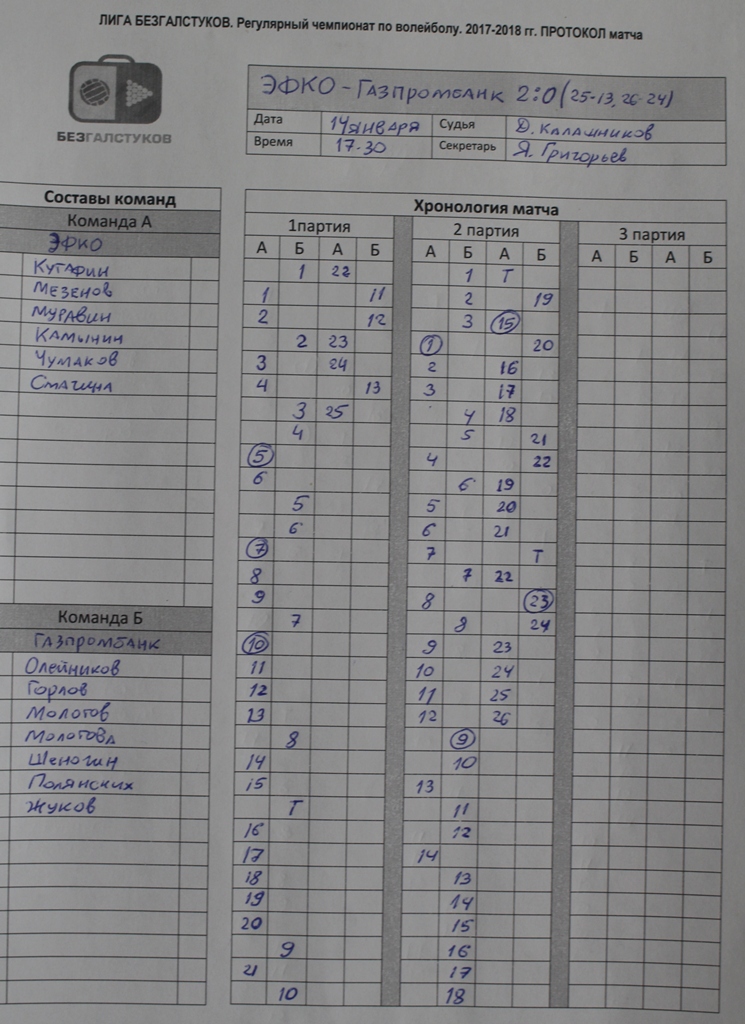 ЛИГА БЕЗГАЛСТУКОВ. Регулярный чемпионат по волейболу. 2017-2018 гг. ПРОТОКОЛ матча
БЕЗГАЛСТУКОВ
ЭФКО - ГАЗПРОМБАНК 2:0 (25-13, 26-24)
Дата 14 ЯНВАРЯ Судья Д. КАЛАШНИКОВ
Время 17-30 Секретарь Я. ГРИГОРЬЕВ
Составы команд
Команда А
ЭФКО
КУТАФИН
МЕЗЕНОВ
МУРАВИН
КАМЫНИН
ЧУМАКОВ
СМАГИНА
Команда Б
ГАЗПРОМБАНК
ОЛЕЙНИКОВ
ГОРЛОВ
МОЛОТОВ
МОЛОТОВА
ШЕНОГИН
ПОЛЯНСКИХ
ЖУКОВ
Хронология матча
1партия 2 партия 3 партия
А Б А Б А Б А Б А Б А Б
1 22 1 Т
1 11 2 19
2 12 3 15
2 23 1 20
3 24 2 16
4 13 3 17
3 25 4 18
4 5 21
5 4 22
6 6 19
5 5 20
6 6 21
7 7 Т
8 7 22
9 8 23
7 8 24
10 9 23
11 10 24
12 11 25
13 12 26
8 9
14 10
15 13
Т 11
16 12
17 14
18 13
19 14
20 15
9 16
21 17
10 18